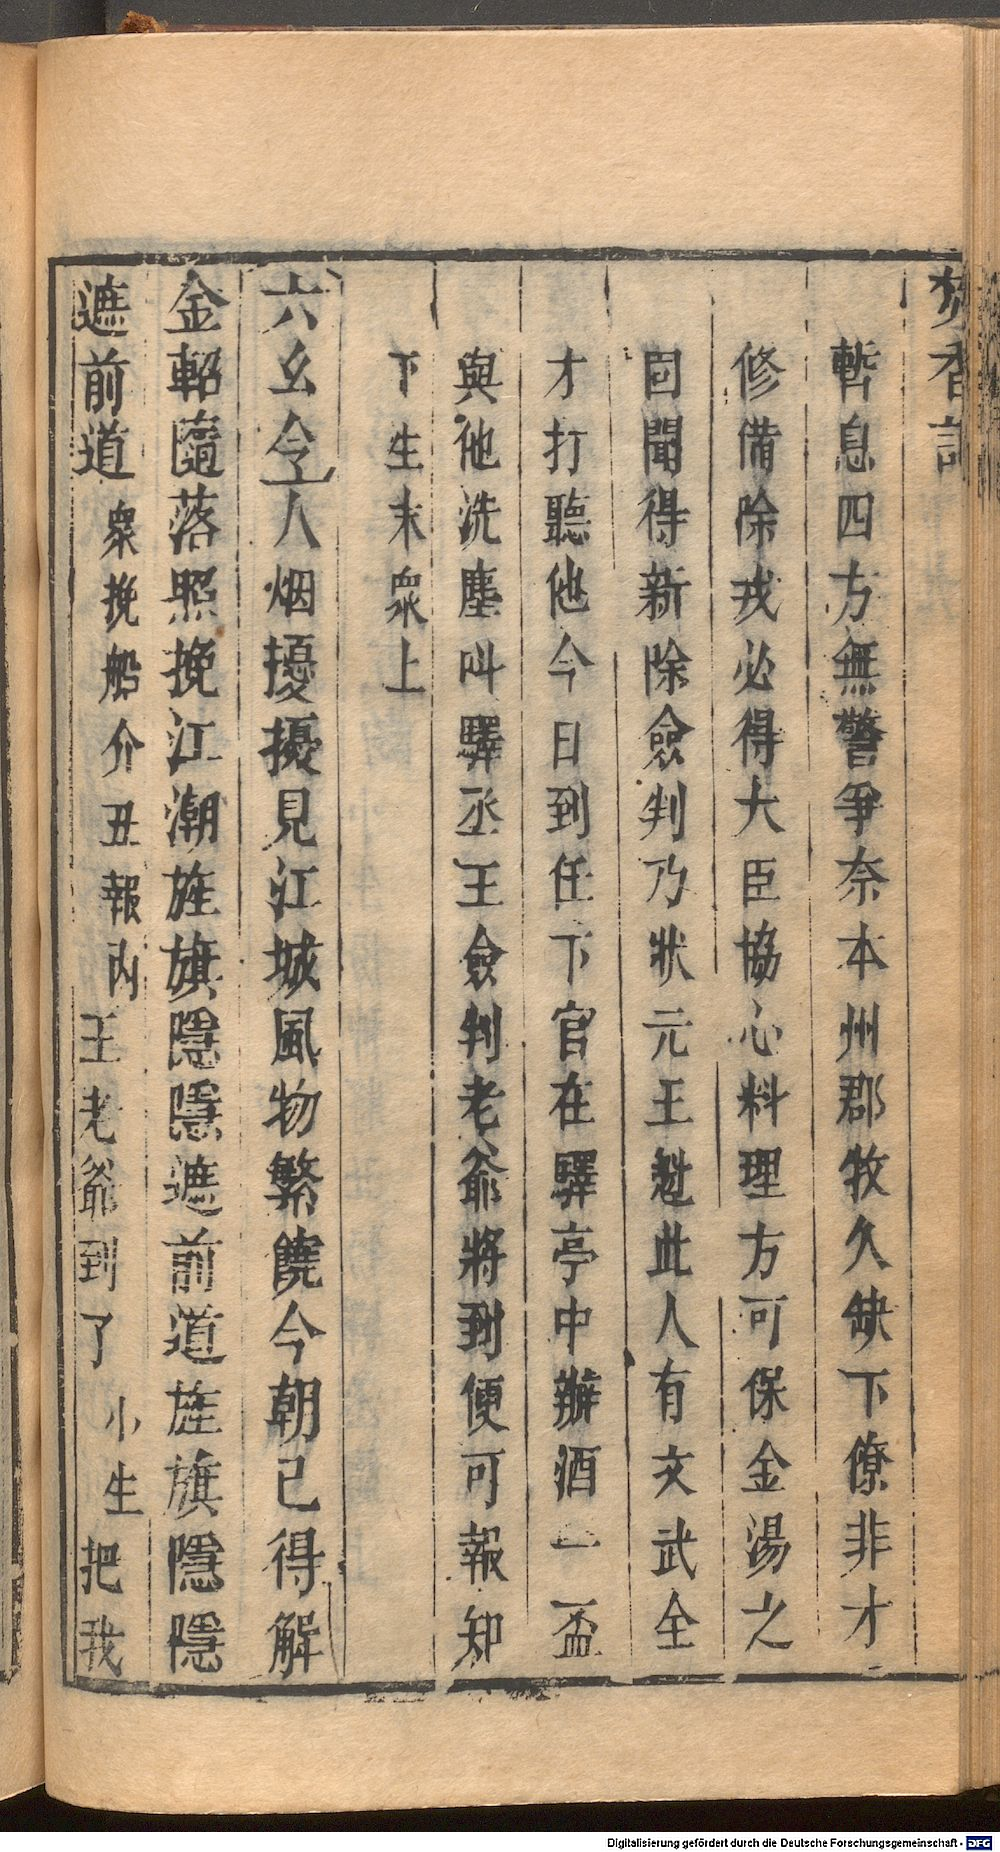 焚香記
暫息四方無警爭奈本州郡牧久缺下僚非才
修備除戎必得大臣協心料理方可保金湯之
固聞得新除僉判乃狀元王魁此人有文武全
才打聽他今日到任下官在驛亭中辦酒一盃
與他洗塵叫驛丞王僉判老爺將到便可報知
下生末衆上
六幺令人烟擾擾見江城風物繁饒今朝已得解
金軺隨落照挽江潮旌旗隱隱遮前道旌旗隱隱
遮前道衆挽船介丑報內王老爺到了小生把我
Digitalisierung gefördert durch die Deutsche Forschungsgemeinschaft - DFG